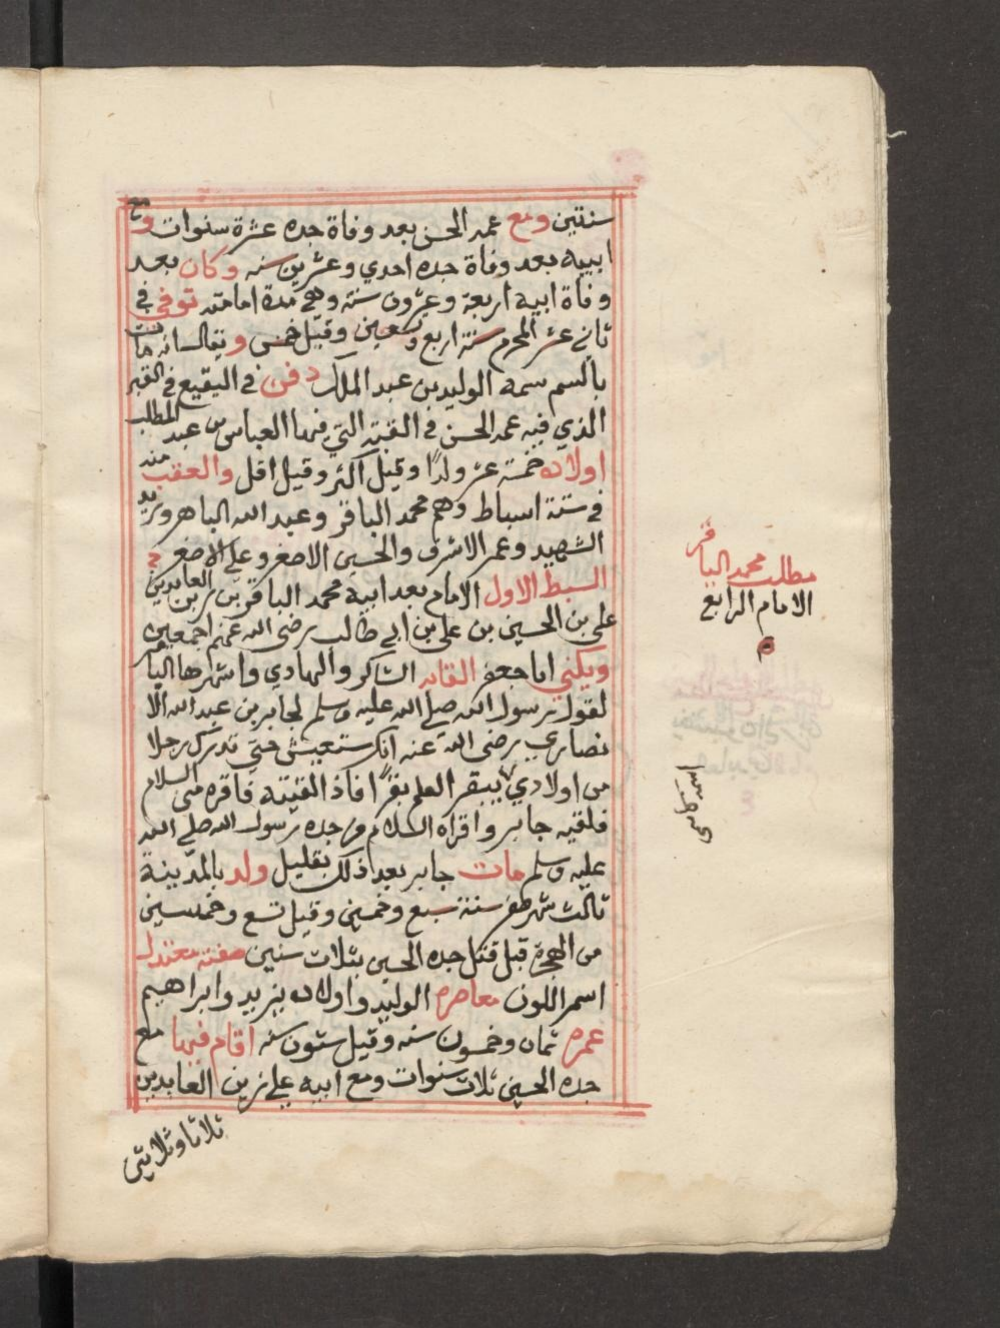 سنتين ومع عمه الحسن بعد وفاة جده عشرة سنوات ومع
ابيه بعد وفاة جده احدي وعشرين سنه وكان بعد
وفاة ابيه اربعة وعشرون سنة وهي مدة امامته توفي في
ثاني عشر المحرم سنة اربع وتسعين وقيل خمس ويقال انه مات
بالسم سمه الوليد بن عبد الملك دفن في البقيع في القبر
الذي فيه عمه الحسن في القبة التي فيها العباس بن عبد المطلب
اولاده خمسة عشر ولدًا وقيل اكثر وقيل اقل والعقب منه
في ستة اسباط وهم محمد الباقر وعبد الله الباهر وزيد
الشهيد وعمر الاشرف والحسين الاصغر وعلي الاصغر
السبط الاول الامام بعد ابيه محمد الباقر بن زين العابدين
علي بن الحسين بن علي بن ابي طالب رضي الله عنهم اجمعين
ويكني ابا جعفر القابه الشاكر والهادي واشهرها الباقر
لقول رسول الله صلي الله عليه وسلم لجابر بن عبد الله الا
نصاري رضي الله عنه انك ستعيش حتي تدرك رجلا
من اولادي يبقر العلم بقرًا فاذا لقيته فاقره مني السلام
فلقيه جابر واقراه السلام من جده رسول الله صلي الله
عليه وسلم مات جابر بعد ذلك بقليل ولد بالمدينة
ثالث شهر صفر سنة سبع وخمسين وقيل تسع وخمسين
من الهجرة قبل قتل جده الحسين بثلاث سنين صفته معتدل
اسمر اللون معاصره الوليد واولاده يزيد وابراهيم
عمره ثمان وخمسون سنه وقيل ستون سنه اقام فيها مع
جده الحسين ثلاث سنوات ومع ابيه علي زين العابدين
ثلاثا وثلاثين
مطلب محمد الباقر
الامام الرابع